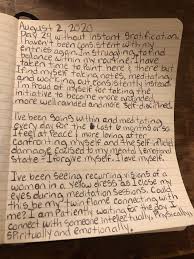 August 2, 2020
Day 24 without instant gratification.
I haven't been consistent with my
entries again. I'm struggling to find
balance within my routine. I have
taken time to rant here & there but
I find myself taking notes, meditating,
and working out consistently instead.
I'm proud of myself for taking the
initiative to become more
more well-rounded and more self-disciplined.
I've been going within and meditating
every day for the last 6 months or so.
I feel at peace I more loving after
confronting myself and the self inflicted
damage caused to my mental & emotional
state. I forgive myself. I love myself.
I've been seeing recurring visions of a
woman in a yellow dress as I close my
eyes during meditation sessions. Could
this be my twin flame connecting with
me? I am patiently waiting for the day I
connect with someone intellectually, physically,
spiritually and emotionally.